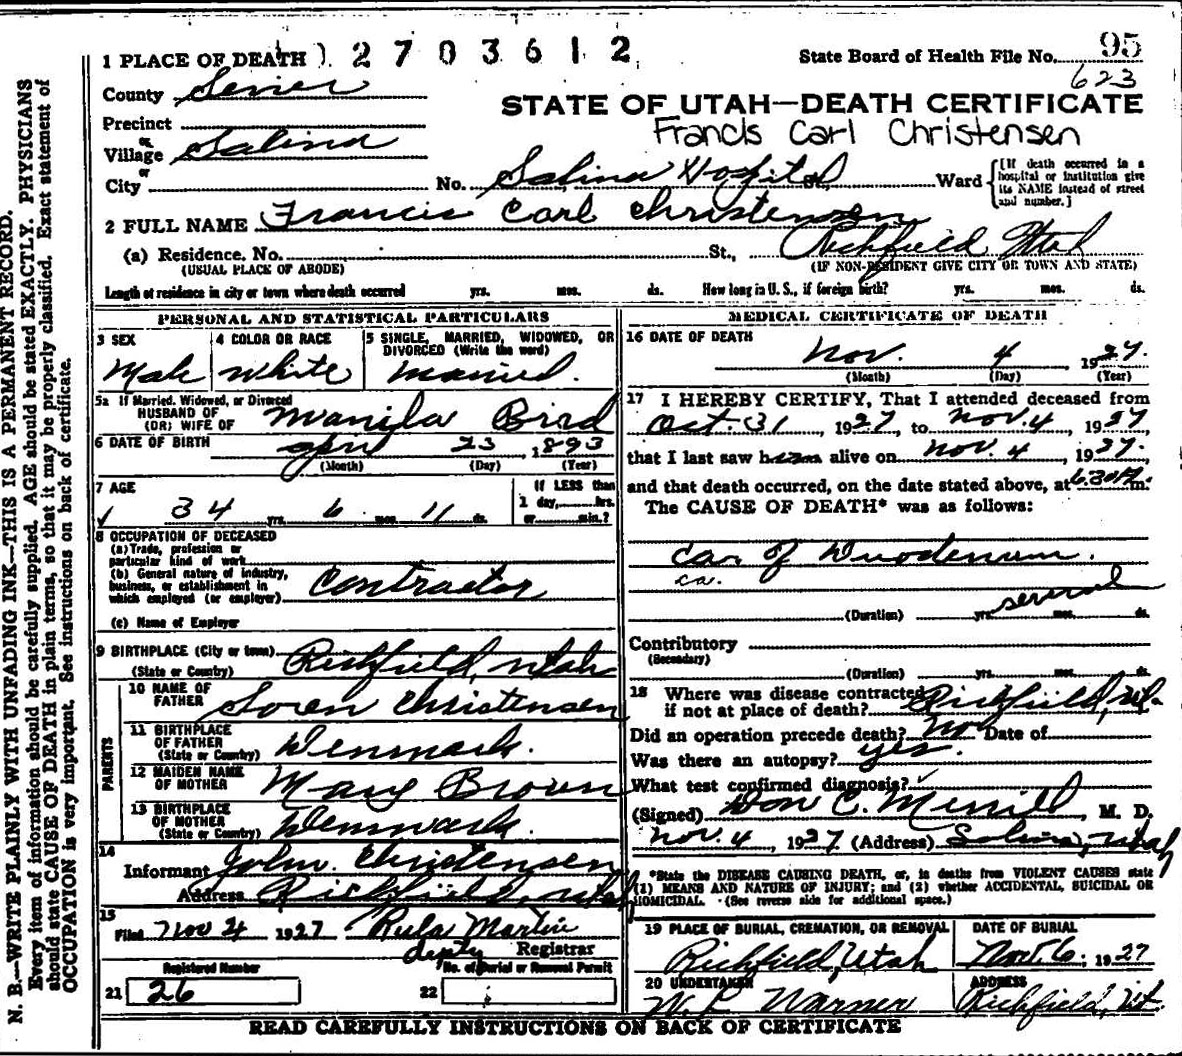 1 PLACE OF DEATH 2703612 State Board of Health File No. 95
623
County Sevier
STATE OF UTAH—DEATH CERTIFICATE
Francis Carl Christensen
Precinct
or
Village Salina
or
City No. Salina Hospital St., Ward [If death occurred in a hospital or institution give its NAME instead of street and number.]
2 FULL NAME Francis Carl Christensen
(a) Residence. No. St., Richfield Utah
(USUAL PLACE OF ABODE) (IF NON-RESIDENT GIVE CITY OR TOWN AND STATE)
Length of residence in city or town where death occurred yrs. mos. ds. How long in U. S., if foreign birth? yrs. mos. ds.
PERSONAL AND STATISTICAL PARTICULARS
3 SEX 4 COLOR OR RACE 5 SINGLE, MARRIED, WIDOWED, OR DIVORCED (Write the word)
Male White Married.
5a If Married, Widowed, or Divorced
HUSBAND OF
(OR) WIFE OF Manila Bird
6 DATE OF BIRTH April 23, 1893
(Month) (Day) (Year)
7 AGE If LESS than
1 day, hrs.
or min.?
34 yrs. 6 mos. 11 ds.
8 OCCUPATION OF DECEASED
(a) Trade, profession or
particular kind of work
(b) General nature of industry,
business, or establishment in
which employed (or employer) Contractor
(c) Name of Employer
9 BIRTHPLACE (City or town)
(State or Country) Richfield, Utah
PARENTS
10 NAME OF
FATHER Soren Christensen
11 BIRTHPLACE
OF FATHER
(State or Country) Denmark.
12 MAIDEN NAME
OF MOTHER Mary Brown
13 BIRTHPLACE
OF MOTHER
(State or Country) Denmark.
14
Informant John Christensen
Address Richfield, Utah
15
Filed Nov 4 1927 Rula Martin
depty Registrar
Registered Number No. of Burial or Removal Permit
21 26 22
MEDICAL CERTIFICATE OF DEATH
16 DATE OF DEATH
Nov. 4 1927.
(Month) (Day) (Year)
17 I HEREBY CERTIFY, That I attended deceased from
Oct. 31, 1927, to Nov. 4, 1927,
that I last saw him alive on Nov. 4, 1927.
and that death occurred, on the date stated above, at 6.30 P. m.
The CAUSE OF DEATH* was as follows:
Ca. of Duodenum.
ca.
(Duration) yrs. several mos. ds.
Contributory
(Secondary)
(Duration) yrs. mos. ds.
18 Where was disease contracted
if not at place of death? Richfield, Ut.
Did an operation precede death? No Date of
Was there an autopsy? yes.
What test confirmed diagnosis?
(Signed) Don C. Merrill, M. D.
Nov. 4, 1927 (Address) Salina, Utah
*State the DISEASE CAUSING DEATH, or, in deaths from VIOLENT CAUSES state
(1) MEANS AND NATURE OF INJURY; and (2) whether ACCIDENTAL, SUICIDAL OR
HOMICIDAL. (See reverse side for additional space.)
19 PLACE OF BURIAL, CREMATION, OR REMOVAL DATE OF BURIAL
Richfield, Utah Nov. 6, 1927
20 UNDERTAKER ADDRESS
W. L. Warner Richfield, Ut.
READ CAREFULLY INSTRUCTIONS ON BACK OF CERTIFICATE
N. B.—WRITE PLAINLY WITH UNFADING INK—THIS IS A PERMANENT RECORD.
Every item of information should be carefully supplied. AGE should be stated EXACTLY. PHYSICIANS
should state CAUSE OF DEATH in plain terms, so that it may be properly classified. Exact statement of
OCCUPATION is very important. See instructions on back of certificate.